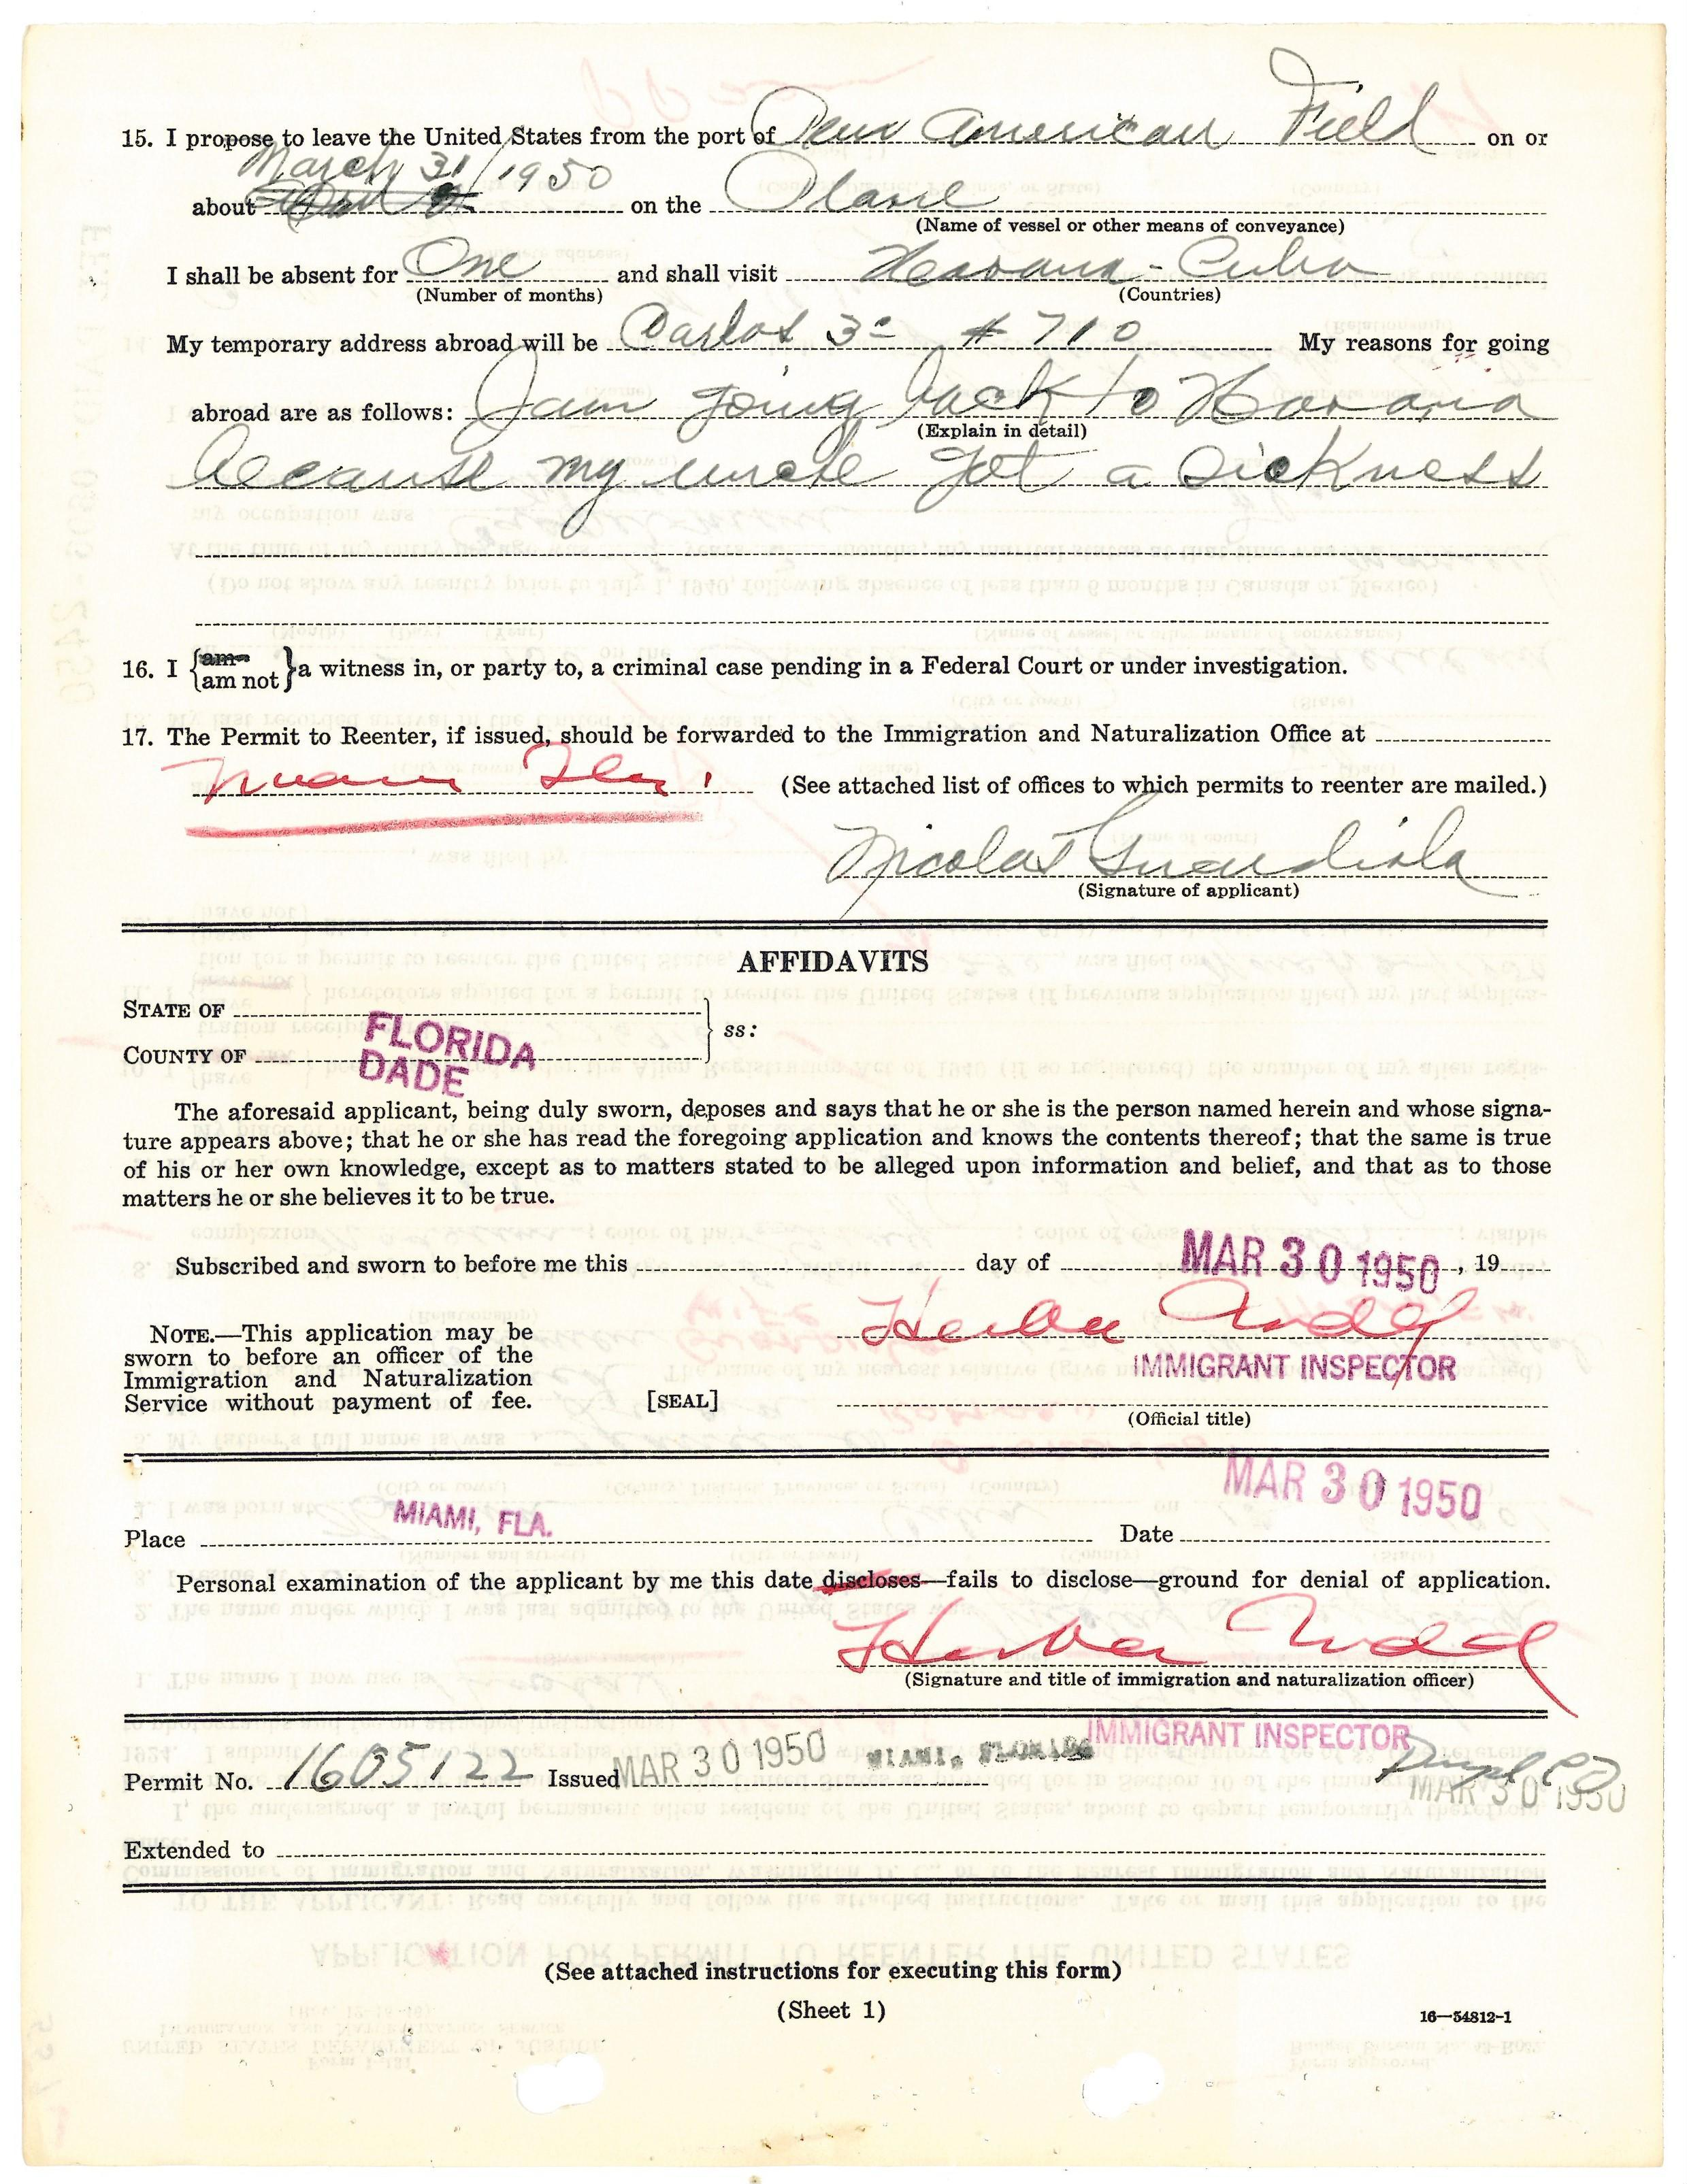 15. I propose to leave the United States from the port of Pan American Field on or
March 31/1950
about on the Plane
(Name of vessel or other means of conveyance)
I shall be absent for One and shall visit Havana - Cuba
(Number of months) (Countries)
My temporary address abroad will be Carlos 3º # 710 My reasons for going
abroad are as follows: I am going back to Havana
(Explain in detail)
because my uncle get a sickness
16. I {am am not} a witness in, or party to, a criminal case pending in a Federal Court or under investigation.
17. The Permit to Reenter, if issued, should be forwarded to the Immigration and Naturalization Office at
Miami Fla. (See attached list of offices to which permits to reenter are mailed.)
Nicolas Guardiola
(Signature of applicant)
AFFIDAVITS
STATE OF FLORIDA
ss:
COUNTY OF DADE
The aforesaid applicant, being duly sworn, deposes and says that he or she is the person named herein and whose signa-
ture appears above; that he or she has read the foregoing application and knows the contents thereof; that the same is true
of his or her own knowledge, except as to matters stated to be alleged upon information and belief, and that as to those
matters he or she believes it to be true.
Subscribed and sworn to before me this day of MAR 30 1950, 19
NOTE.—This application may be
sworn to before an officer of the
Immigration and Naturalization
Service without payment of fee. [SEAL]
IMMIGRANT INSPECTOR
(Official title)
MAR 30 1950
Place MIAMI, FLA. Date
Personal examination of the applicant by me this date discloses—fails to disclose—ground for denial of application.
(Signature and title of immigration and naturalization officer)
IMMIGRANT INSPECTOR
Permit No. 1605122 Issued MAR 30 1950 MIAMI, FLORIDA
MAR 30 1950
Extended to
(See attached instructions for executing this form)
(Sheet 1)
16—54812-1